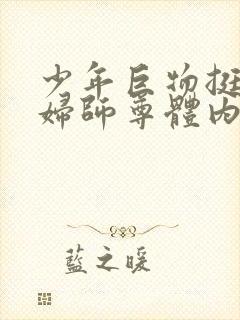 少年巨物挺
婦師尊體內
藍之暖